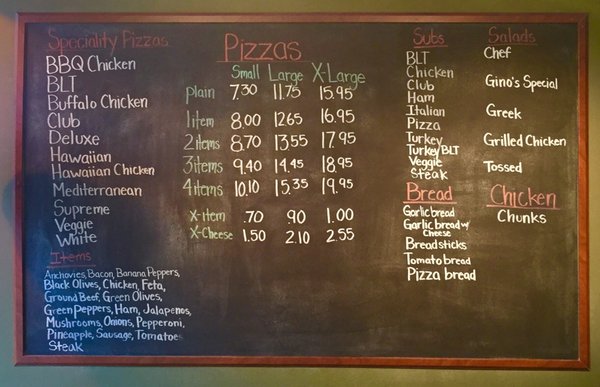 Speciality Pizzas
BBQ Chicken
BLT
Buffalo Chicken
Club
Deluxe
Hawaiian
Hawaiian Chicken
Mediterranean
Supreme
Veggie
White
Items
Anchovies, Bacon, Banana Peppers,
Black Olives, Chicken, Feta,
Ground Beef, Green Olives,
Green Peppers, Ham, Jalapenos,
Mushrooms, Onions, Pepperoni,
Pineapple, Sausage, Tomatoes
Steak
Pizzas
Small Large X-Large
plain 7.30 11.75 15.95
1 item 8.00 12.65 16.95
2 items 8.70 13.55 17.95
3 items 9.40 14.45 18.95
4 items 10.10 15.35 19.95
X-item .70 .90 1.00
X-Cheese 1.50 2.10 2.55
Subs
BLT
Chicken
Club
Ham
Italian
Pizza
Turkey
Turkey BLT
Veggie
Steak
Bread
Garlic bread
Garlic bread w/
Cheese
Breadsticks
Tomato bread
Pizza bread
Salads
Chef
Gino's Special
Greek
Grilled Chicken
Tossed
Chicken
Chunks